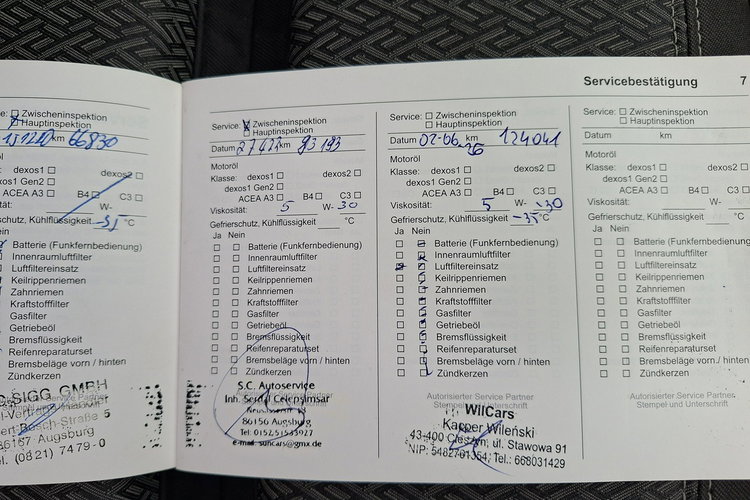 Servicebestätigung 7
Zwischeninspektion
Hauptinspektion
km 66830
dexos1
dexos2
dexos1 Gen2
ACEA A3 B4 C3
W-
Gefrierschutz, Kühlflüssigkeit -35 °C
Nein
Batterie (Funkfernbedienung)
Innenraumluftfilter
Luftfiltereinsatz
Keilrippenriemen
Zahnriemen
Kraftstofffilter
Gasfilter
Getriebeöl
Bremsflüssigkeit
Reifenreparaturset
Bremsbeläge vorn / hinten
Zündkerzen
SIGG GMBH
86167 Augsburg
Tel. (0821) 7479-0
Service: Zwischeninspektion
Hauptinspektion
Datum km 93193
Motoröl
Klasse: dexos1 dexos2
dexos1 Gen2
ACEA A3 B4 C3
Viskosität: 5 W- 30
Gefrierschutz, Kühlflüssigkeit °C
Ja Nein
Batterie (Funkfernbedienung)
Innenraumluftfilter
Luftfiltereinsatz
Keilrippenriemen
Zahnriemen
Kraftstofffilter
Gasfilter
Getriebeöl
Bremsflüssigkeit
Reifenreparaturset
Bremsbeläge vorn / hinten
Zündkerzen
S.C. Autoservice
86156 Augsburg
Tel: 01525 1533927
e-mail: suncars@gmx.de
Service: Zwischeninspektion
Hauptinspektion
Datum 02-06-26 km 124041
Motoröl
Klasse: dexos1 dexos2
dexos1 Gen2
ACEA A3 B4 C3
Viskosität: 5 W- 30
Gefrierschutz, Kühlflüssigkeit -35 °C
Ja Nein
Batterie (Funkfernbedienung)
Innenraumluftfilter
Luftfiltereinsatz
Keilrippenriemen
Zahnriemen
Kraftstofffilter
Gasfilter
Getriebeöl
Bremsflüssigkeit
Reifenreparaturset
Bremsbeläge vorn / hinten
Zündkerzen
Autorisierter Service Partner
Stempel und Unterschrift
WilCars
Kacper Wileński
43-400 Cieszyn, ul. Stawowa 91
NIP: 5482701354, Tel.: 668031429
Service: Zwischeninspektion
Hauptinspektion
Datum km
Motoröl
Klasse: dexos1 dexos2
dexos1 Gen2
ACEA A3 B4 C3
Viskosität: W-
Gefrierschutz, Kühlflüssigkeit °C
Ja Nein
Batterie (Funkfernbedienung)
Innenraumluftfilter
Luftfiltereinsatz
Keilrippenriemen
Zahnriemen
Kraftstofffilter
Gasfilter
Getriebeöl
Bremsflüssigkeit
Reifenreparaturset
Bremsbeläge vorn / hinten
Zündkerzen
Autorisierter Service Partner
Stempel und Unterschrift